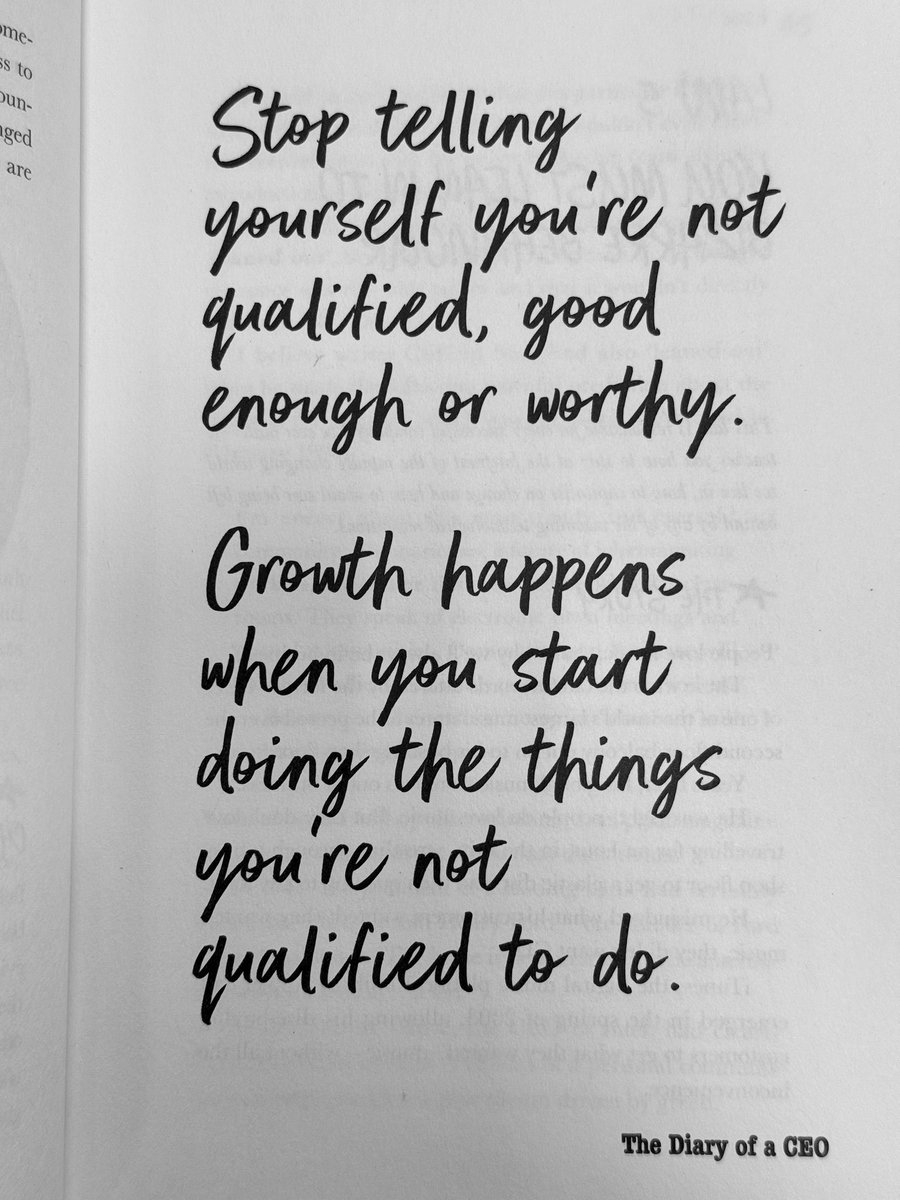 ome-
ss to
oun-
nged
are
Stop telling
yourself you're not
qualified, good
enough or worthy.
Growth happens
when you start
doing the things
you're not
qualified to do.
The Diary of a CEO